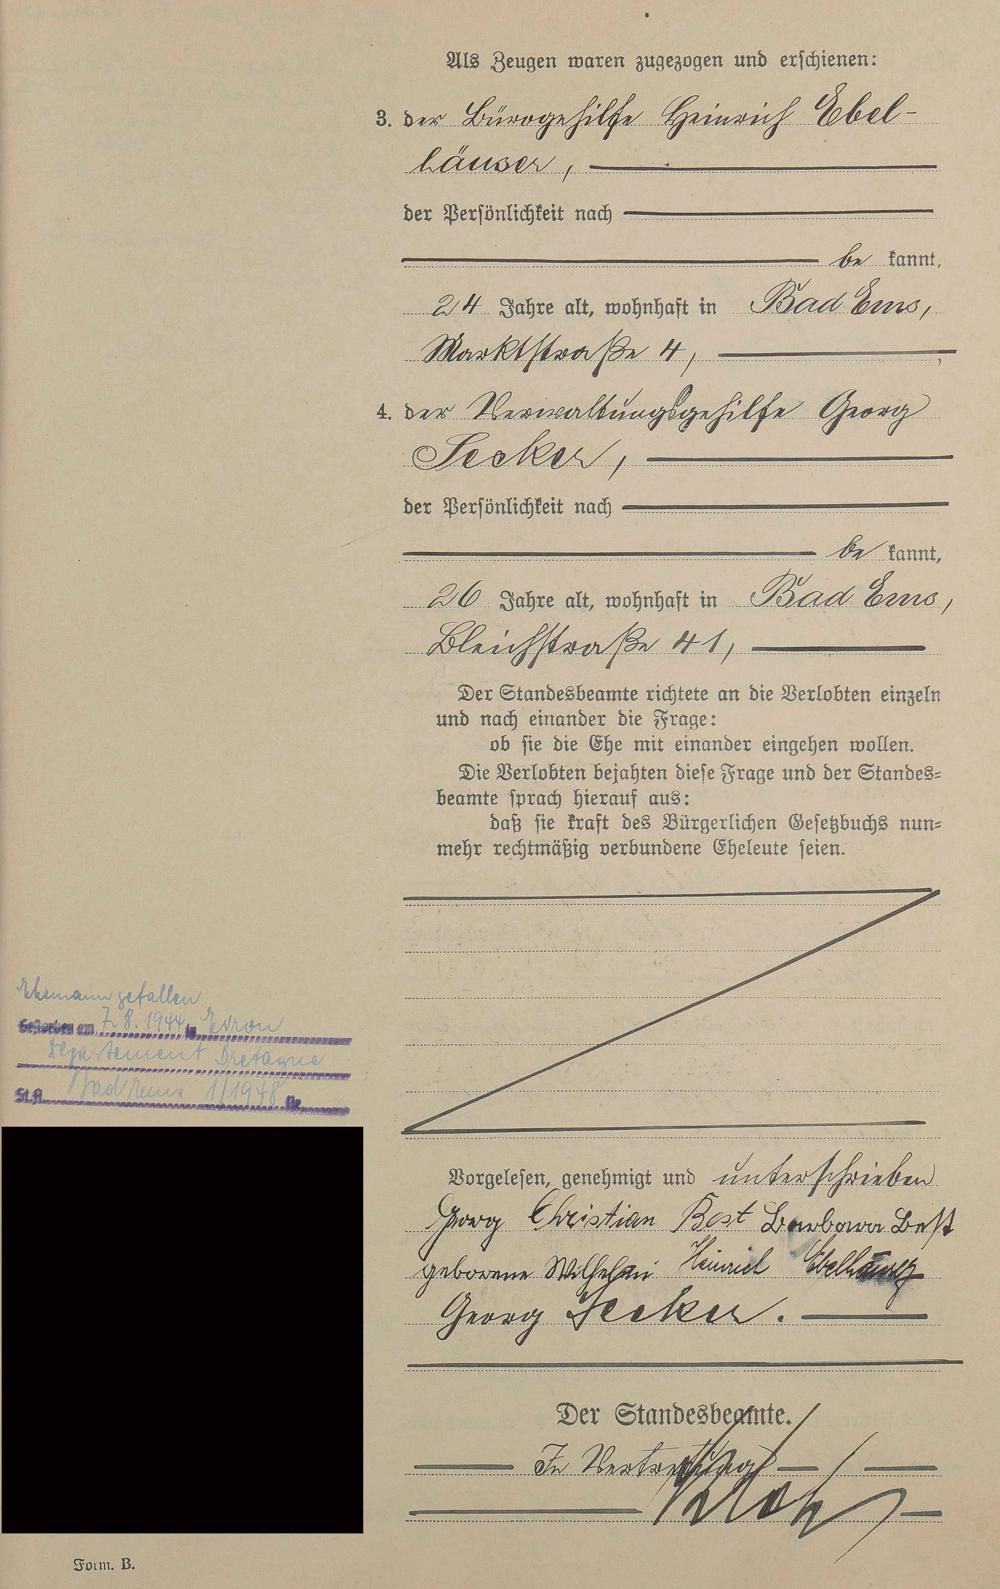 Als Zeugen waren zugezogen und erschienen:
3. der Bürogehilfe Heinrich Ebel-
häuser,
der Persönlichkeit nach
be kannt,
24 Jahre alt, wohnhaft in Bad Ems,
Marktstraße 4,
4. der Verwaltungsgehilfe Georg
Secker,
der Persönlichkeit nach
be kannt,
26 Jahre alt, wohnhaft in Bad Ems,
Bleichstraße 41,
Der Standesbeamte richtete an die Verlobten einzeln
und nach einander die Frage:
ob sie die Ehe mit einander eingehen wollen.
Die Verlobten bejahten diese Frage und der Standes=
beamte sprach hierauf aus:
daß sie kraft des Bürgerlichen Gesetzbuchs nun=
mehr rechtmäßig verbundene Eheleute seien.
Ehemann gefallen
Gestorben am 7.8.1944 in
Departement Bretagne
St.A. Bad Ems 1/1948 Nr.
Vorgelesen, genehmigt und unterschrieben
Georg Christian Best Barbara Best
geborene Wilhelmi Heinrich Ebelhäuser
Georg Secker.
Der Standesbeamte.
In Vertretung
Form. B.